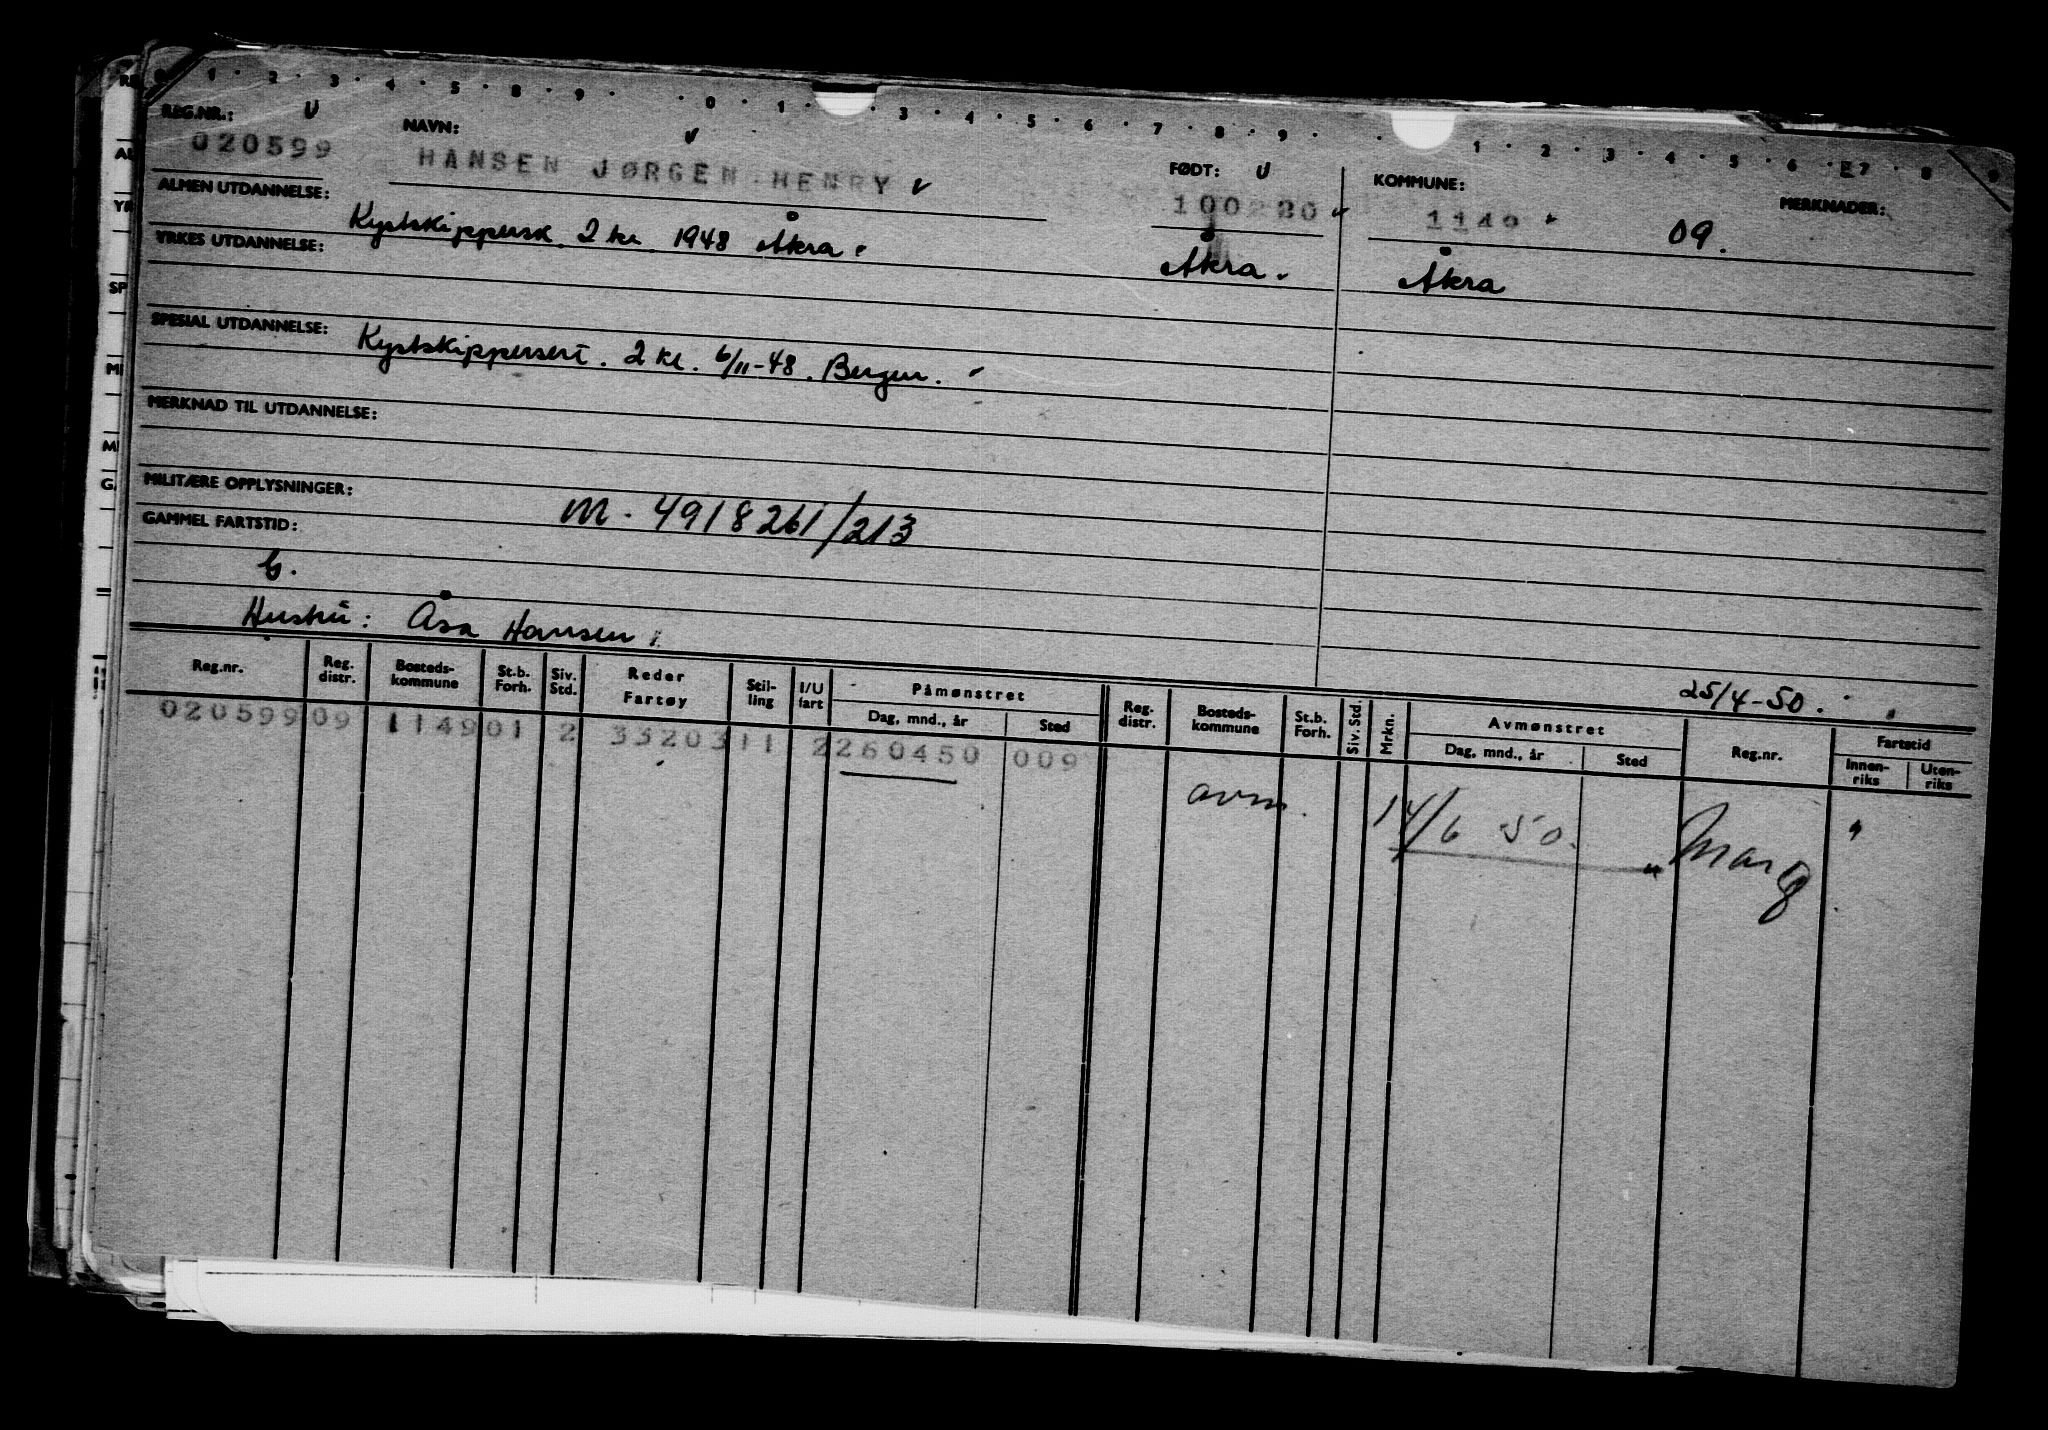 REG.NR.:
020599
NAVN:
HANSEN JØRGEN HENRY
FØDT:
KOMMUNE:
MERKNADER:
09.
ALMEN UTDANNELSE:
Kystskippersk. 2 kl. 1948 Åkra.
Åkra.
Åkra
YRKES UTDANNELSE:
SPESIAL UTDANNELSE:
Kystskippersert. 2 kl. 6/11-48. Bergen.
MERKNAD TIL UTDANNELSE:
MILITÆRE OPPLYSNINGER:
M. 4918261/213
GAMMEL FARTSTID:
Hustru: Åsa Hansen
25/4-50.
Reg.nr. Reg. distr. Bosteds-kommune St.b. Forh. Siv. Std. Reder Fartøy Stil-ling I/U fart Påmønstret Dag, mnd., år Sted Reg. distr. Bosteds-kommune St.b. Forh. Siv. Std. Mrkn. Avmønstret Dag, mnd., år Sted Reg.nr. Fartstid Innen-riks Uten-riks
020599 09 1149 01 2 3320311 2 260450 009
avm. 14/6 50.